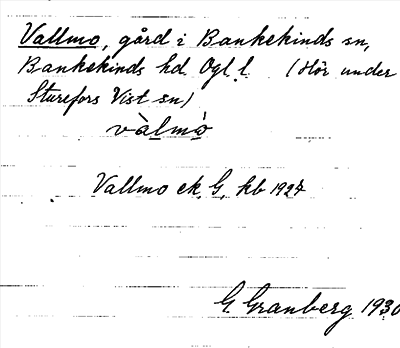 Vallmo, gård i Bankekinds sn,
Bankekinds hd. Ögl. l. (Hör under
Sturefors Vist sn)
vàlmó
Vallmo ek. G. kb 1927
G. Granberg 1930